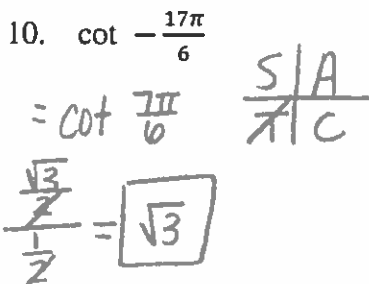 10. cot − 17π/6
= cot 7π/6
S A
T C
√3/2
/
1/2
= √3